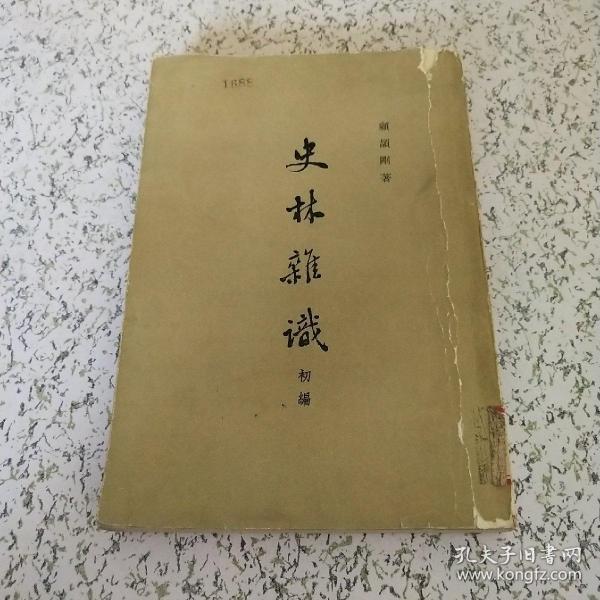 1688
顧頡剛著
史林雜識
初編
孔夫子旧書网
www.kongfz.com